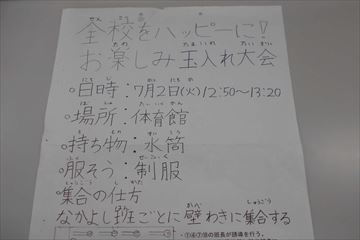 全校をハッピーに!
お楽しみ玉入れ大会
○日時:7月2日(火)12:50~13:20
○場所:体育館
○持ち物:水筒
○服そう:制服
○集合の仕方
なかよし班ごとに壁わきに集合する